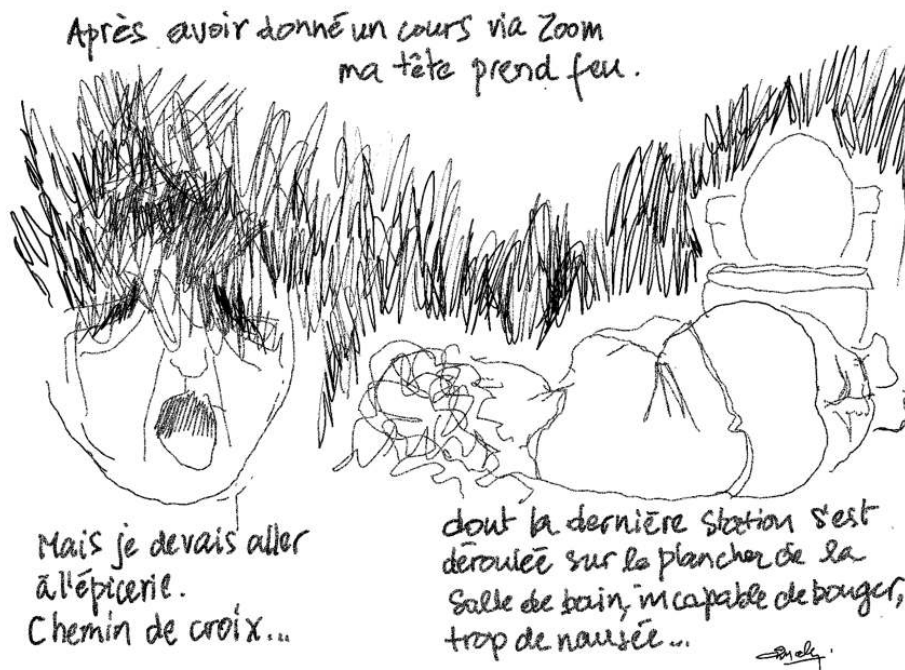 Après avoir donné un cours via Zoom
ma tête prend feu.
Mais je devais aller
à l'épicerie.
Chemin de croix...
dont la dernière station s'est
déroulée sur le plancher de la
salle de bain, incapable de bouger,
trop de nausée...